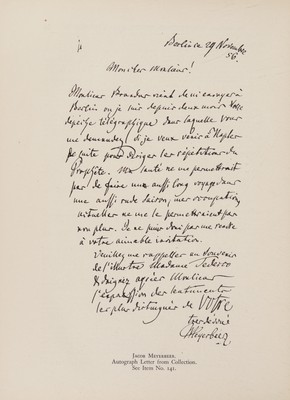 Berlin ce 29 Novembre
56.
Monsieur
Monsieur Brandus vient de m'envoyer à
Berlin où je suis depuis deux mois Votre
depêche télégraphique dans laquelle vous
me demandez si je veux venir à Naples
de suite pour diriger les répétitions du
Prophète. Ma santé ne me permettrait
pas de faire un aussi long voyage dans
une aussi rude saison, mes occupations
actuelles ne me le permettraient pas
non plus. Je ne puis donc pas me rendre
à votre aimable invitation.
Veuillez me rappeller au souvenir
de l'illustre Madame Tedesco
& daignez agréer Monsieur
l'expression des sentiments
les plus distingués de Votre
tres dévoué
Meyerbeer
JACOB MEYERBEER.
Autograph Letter from Collection.
See Item No. 141.